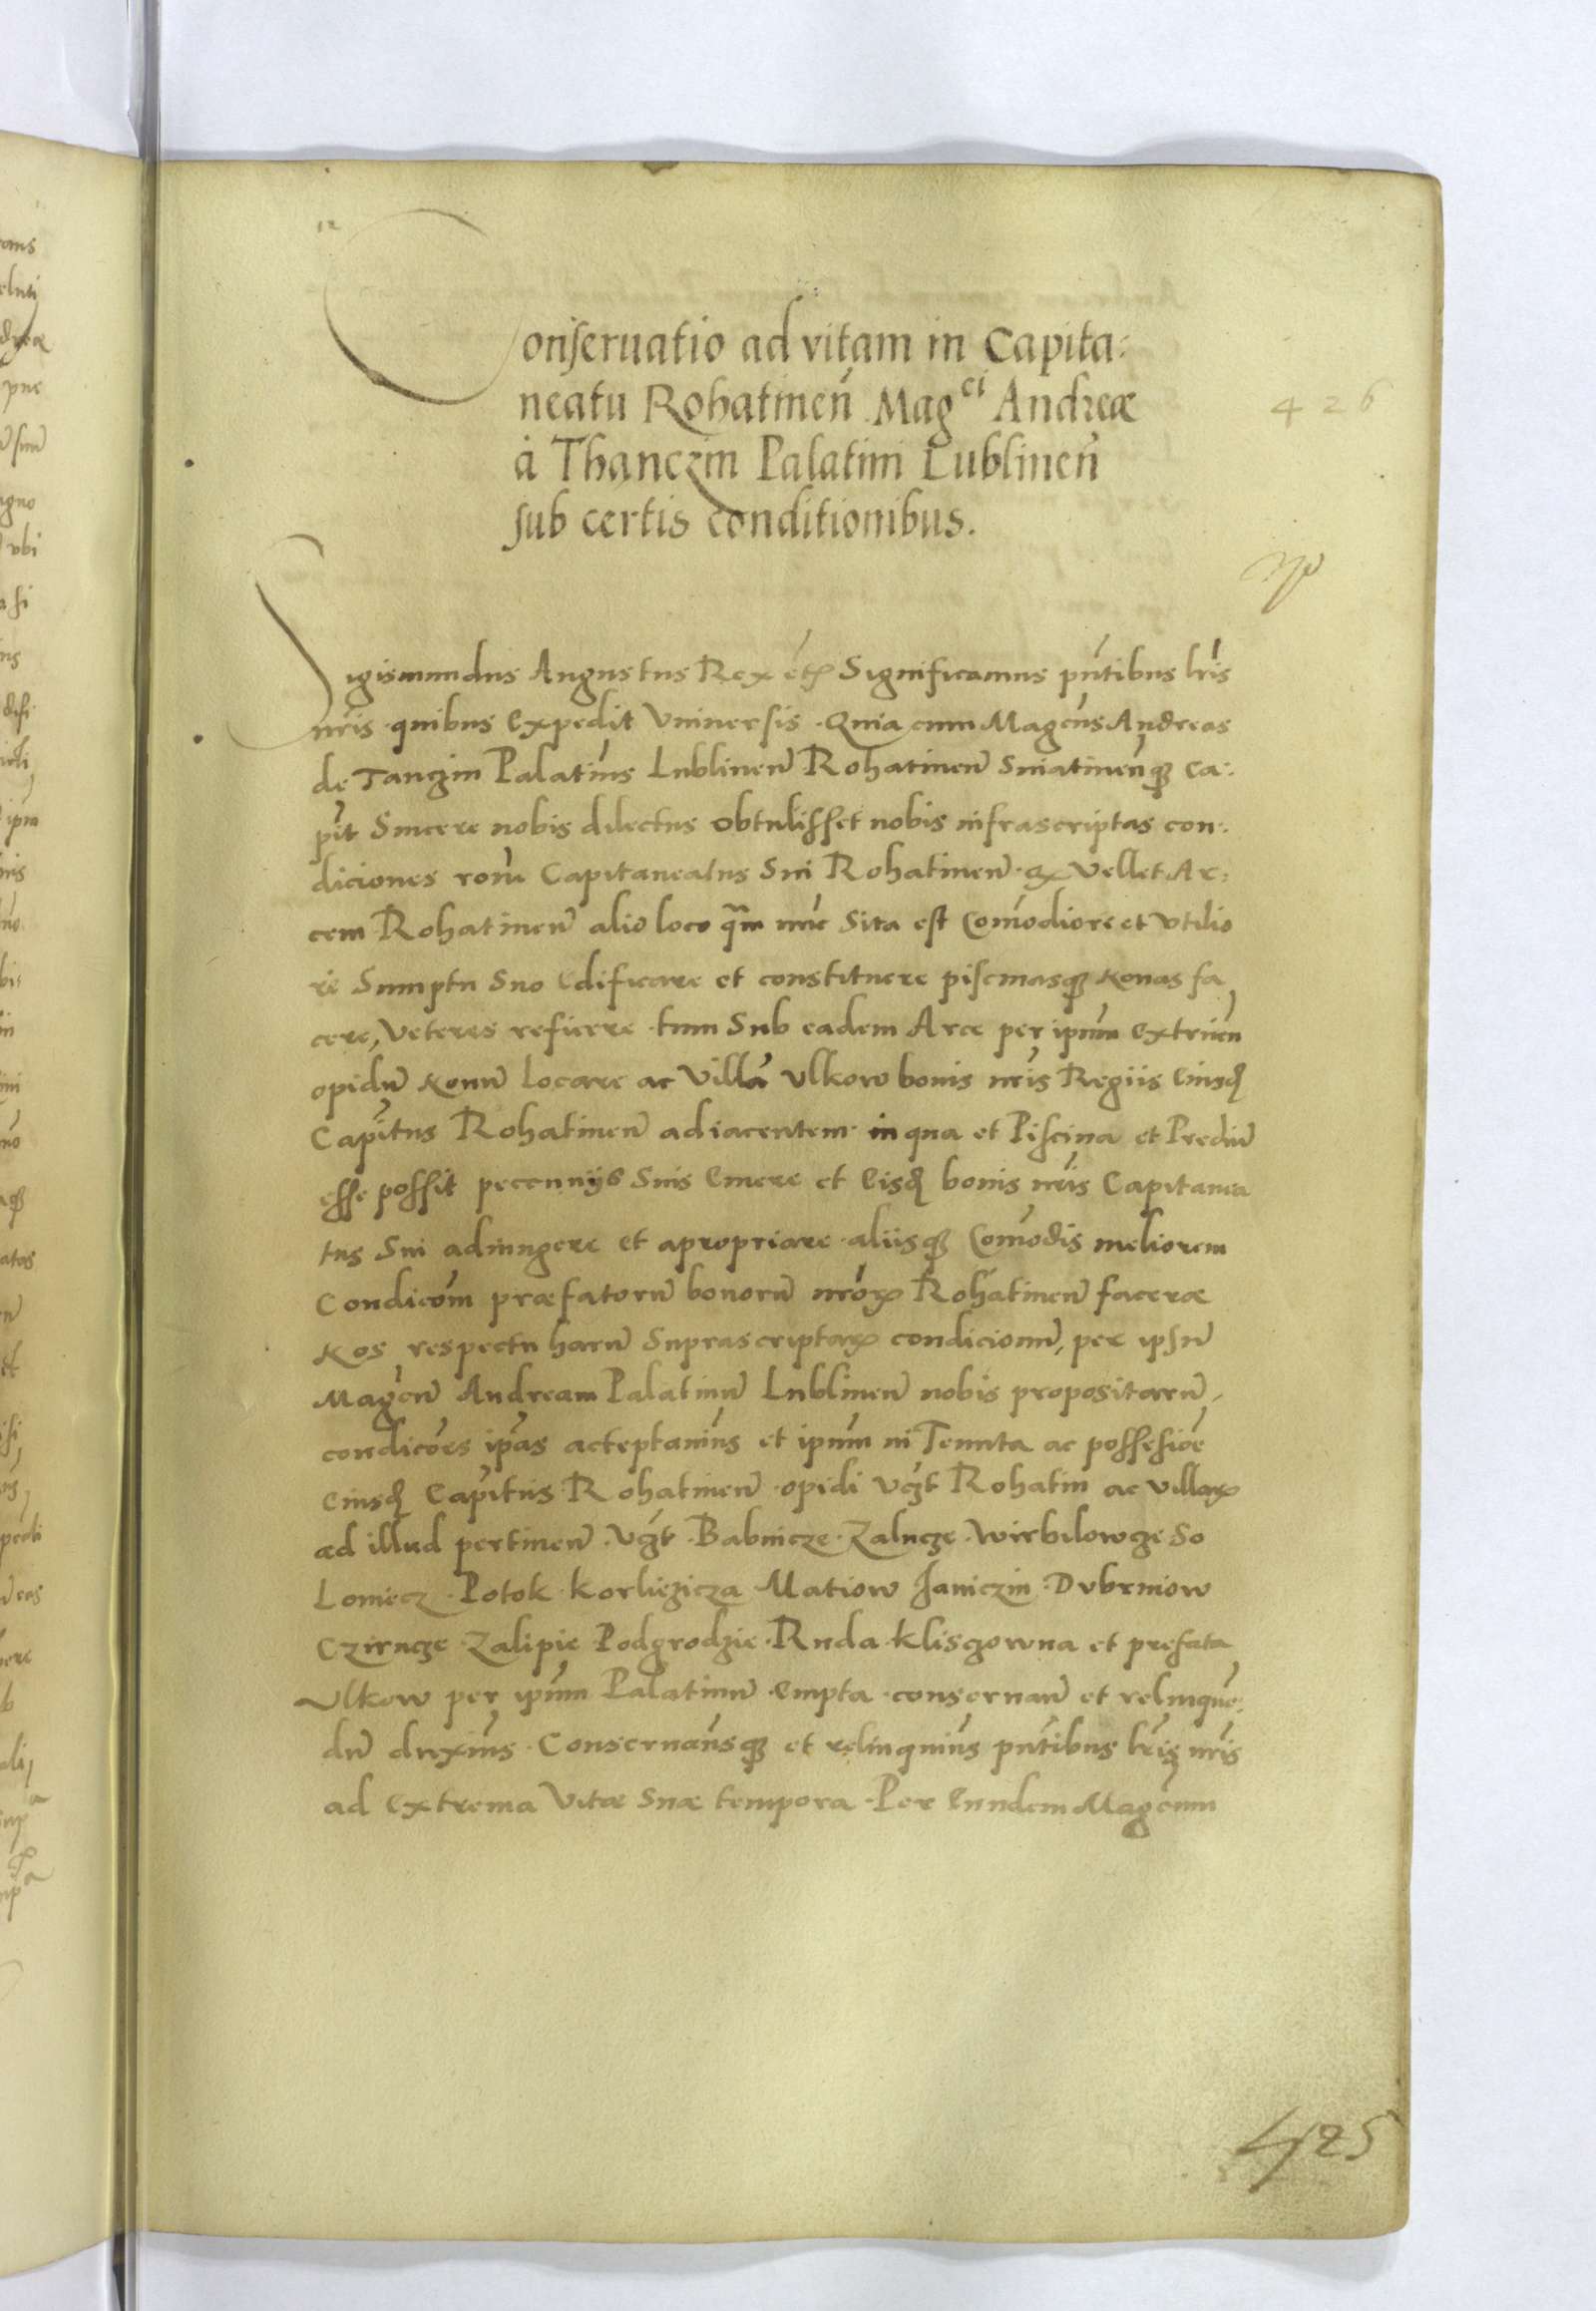 Conseruatio ad vitam in Capita:
neatu Rohatineñ Mag^ci Andreæ
à Thanczin Palatini Lublineñ
sub certis conditionibus.
426
Sigismundus Augustus Rex etc Significamus pñtibus lr̃is
nr̃is quibus Expedit Vniuersis. Quia cum Magcus Andreas
de Tanczin Palatiñs Lublineñ Rohatineñ Sniatineñq; Ca:
pit̃ Sincere nobis dilectus Obtulisset nobis infrascriptas con:
diciones rom̃ Capitaneatus Sui Rohatineñ. Vellet Ar:
cem Rohatineñ alio loco qm̃ nũc Sita est Com̃odiore et Vtilio
re Sumptu Suo Edificare et constituere piscinasq; Nouas fa
cere, Veteres reficere. tum Sub eadem Arce per ipũm Extrueñ
opidũ Nouũ locare ac Villã Vlkow bonis nr̃is Regiis Eiusđ
Capit̃us Rohatineñ adiacentem. in qua et Piscina et Prediũ
esse possit pecunnijs Suis Emere et Eisđ bonis nr̃is Capitanea
tus Sui adiungere et apropriare. aliisq; Com̃odis meliorem
Condicom̃ præfatorũ bonorũ nr̃or Rohatineñ facere
Nos respectu harũ Suprascriptar condicionũ, per ipsũ
Magcũ Andream Palatinũ Lublineñ nobis propositarũ,
condicões ipãs acceptauim̃s et ipũm in Tenuta ac possesiõe
Eiusđ Capit̃us Rohatineñ. opidi Vcz̃t Rohatin ac Villar
ad illud pertineñ. Vcz̃t. Babnicze. Zalucze. Wirbilowcze So
Loniecz. Potok. Korliezicza Matiow Janiczin. Dvbrniow
Czirncze. Zalipie Podgrodzie. Ruda. Kliszczowna et prefata
Vlkow per ipũm Palatinũ. Empta. conseruanđ et relinqueñ:
dũ duxim̃s. Conseruam̃sq; et relinquim̃s pñtibus lr̃is nr̃is
ad Extrema Vitæ Suæ tempora. Per Eundem Magcum
425